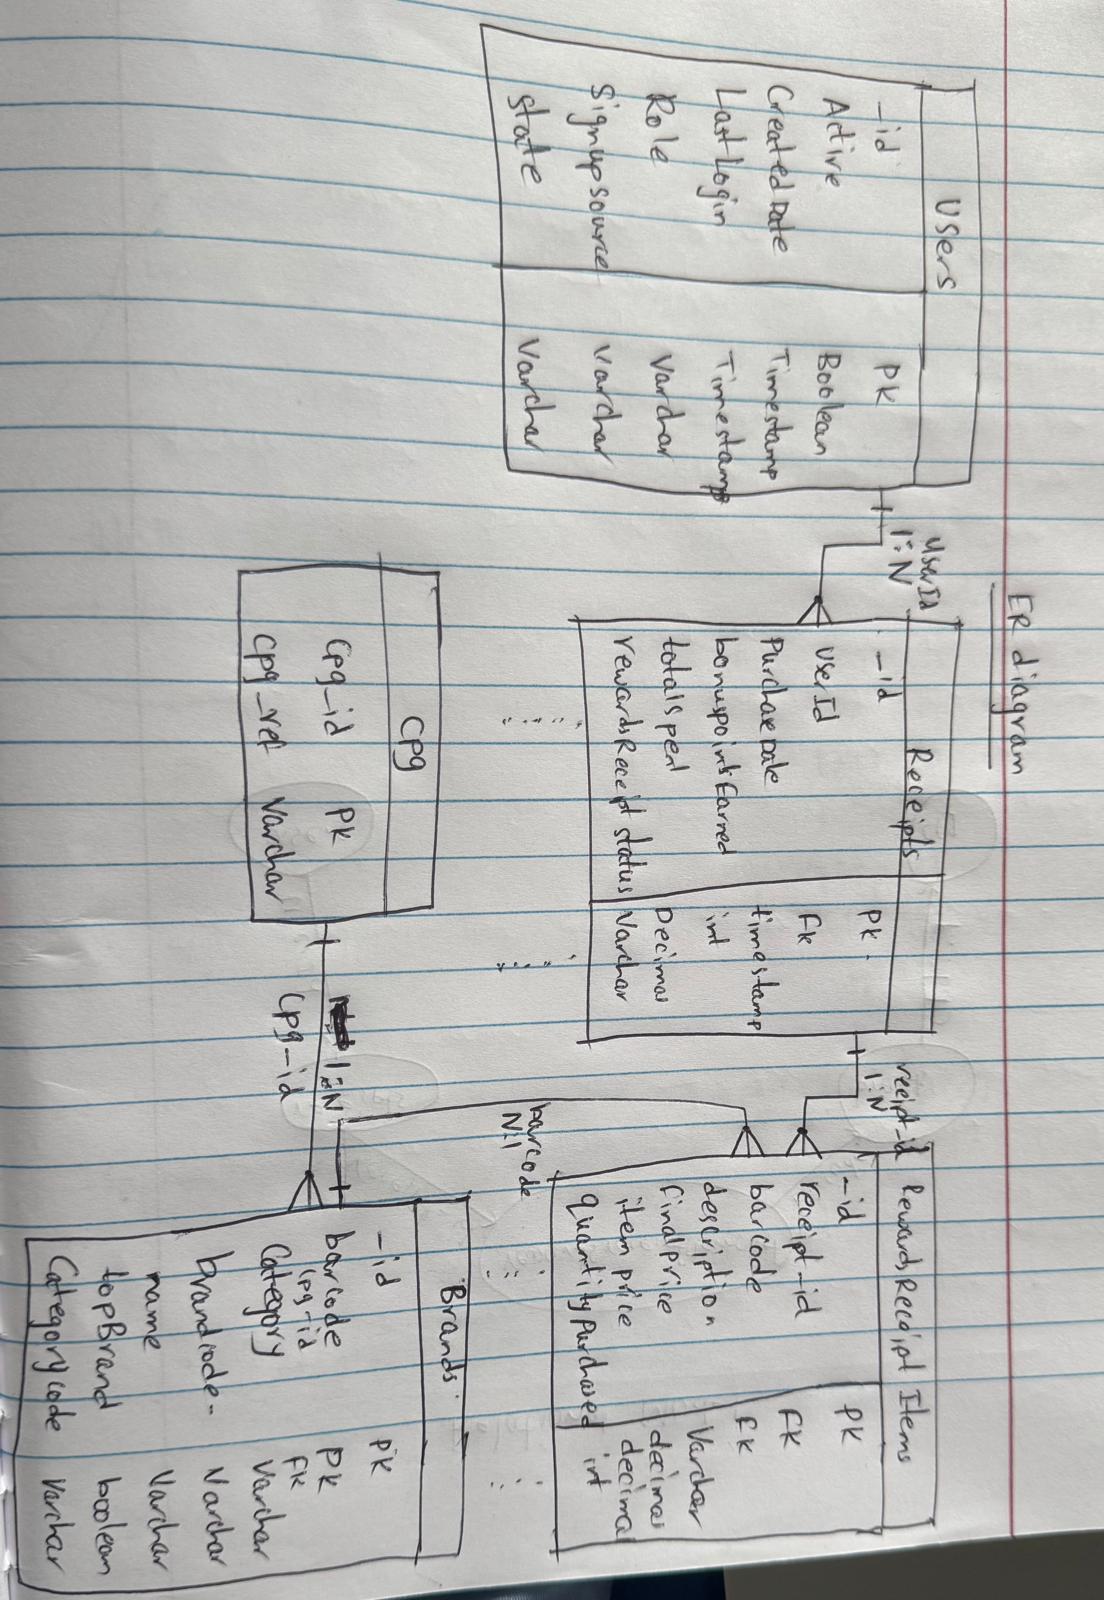 ER diagram
Users
_id PK
Active Boolean
CreatedDate Timestamp
LastLogin Timestamp
Role Varchar
Signupsource Varchar
State Varchar
UserId
1:N
Receipts
_id PK
UserId FK
PurchaseDate timestamp
bonuspointsEarned int
totalspent Decimal
rewardsReceipt status Varchar
receipt_id
1:N
RewardsReceipt Items
_id PK
receipt_id FK
barcode FK
description Varchar
finalprice decimal
item price decimal
quantitypurchased int
barcode
N:1
Cpg
Cpg_id PK
Cpg_ref Varchar
1:N
Cpg_id
Brands
_id PK
barcode PK
Cpg_id FK
Category Varchar
brandcode Varchar
name Varchar
topBrand boolean
Categorycode Varchar